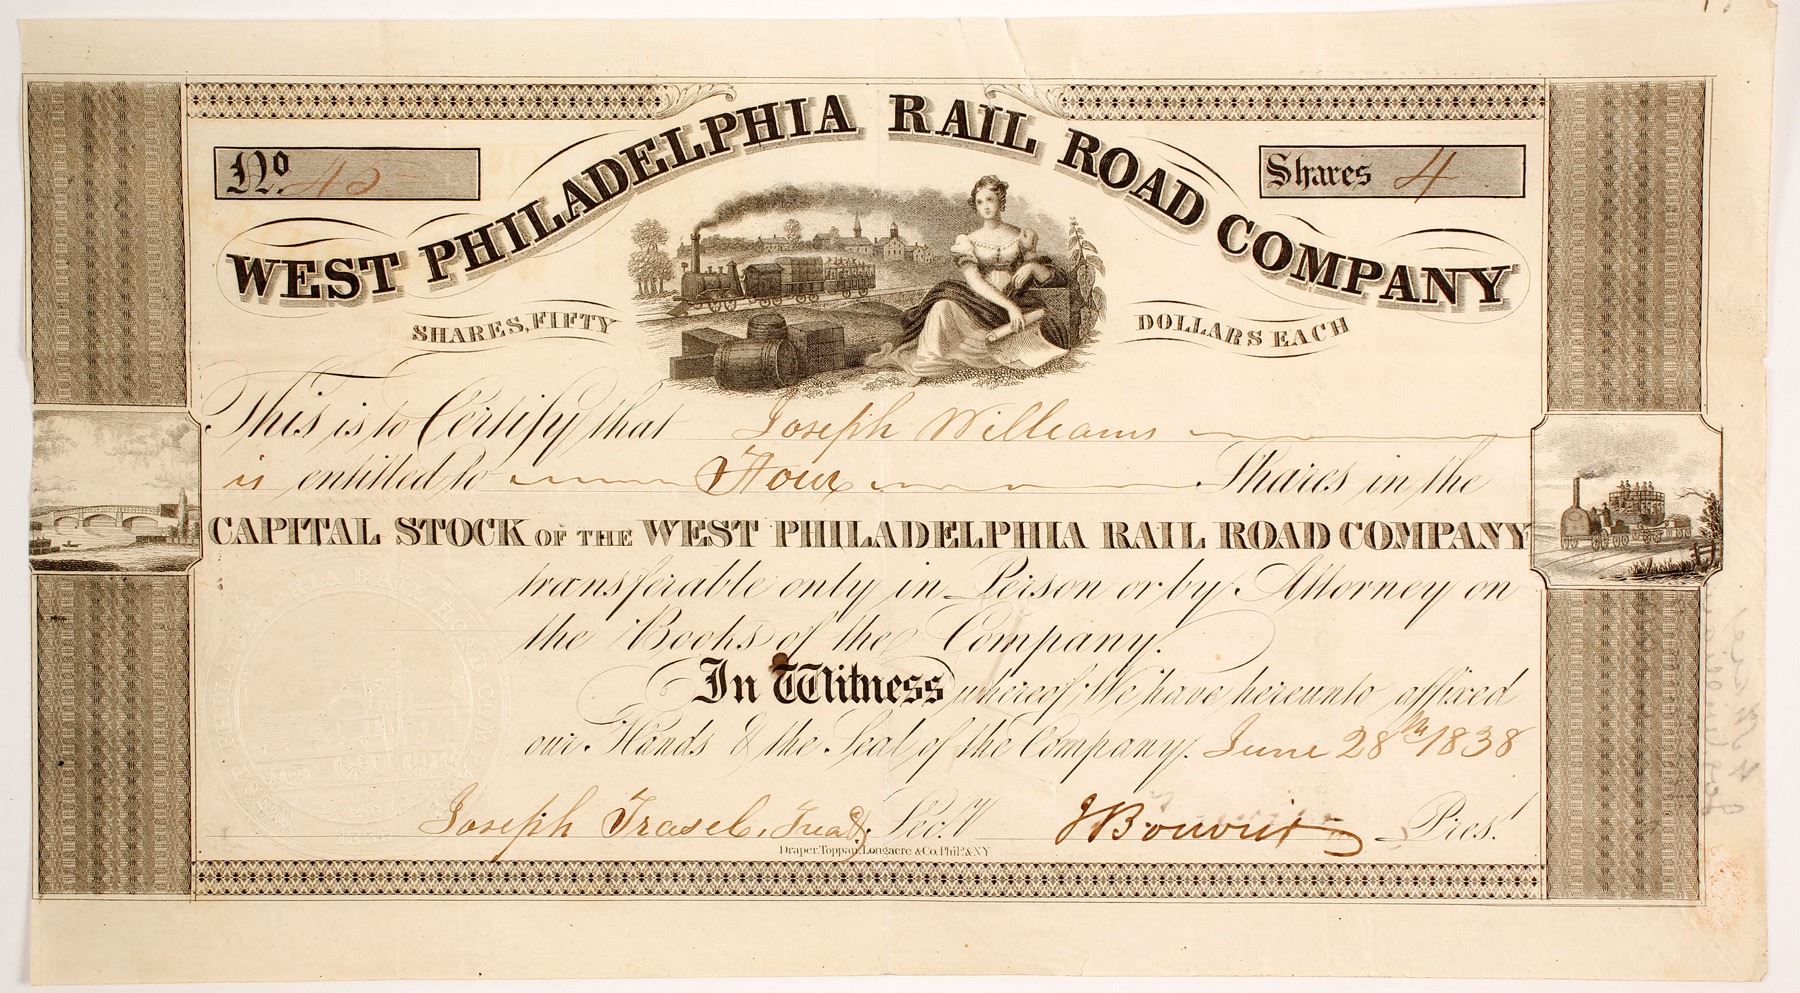 WEST PHILADELPHIA RAIL ROAD COMPANY
No. 45
Shares 4
SHARES, FIFTY DOLLARS EACH
This is to Certify that Joseph Williams
is entitled to Four Shares in the
CAPITAL STOCK OF THE WEST PHILADELPHIA RAIL ROAD COMPANY
transferable only in Person or by Attorney on
the Books of the Company.
In Witness whereof, We have hereunto affixed
our Hands & the Seal of the Company. June 28th 1838
Joseph Treas. & Sec.y Pres.t
Draper, Toppan, Longacre & Co. Phila. & NY